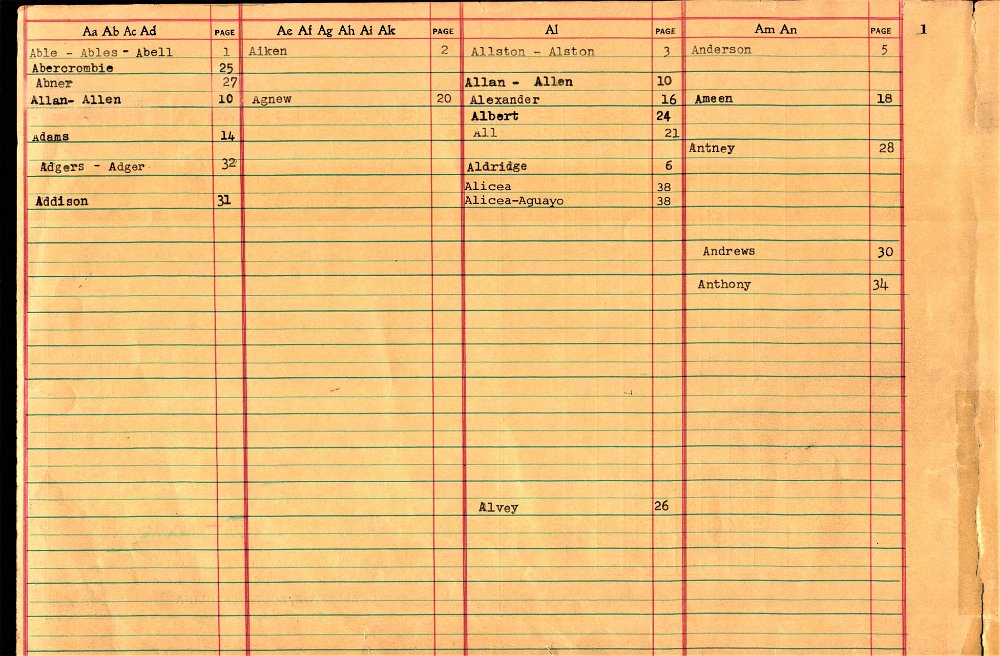 Aa Ab Ac Ad PAGE
Able - Ables - Abell 1
Abercrombie 25
Abner 27
Allan- Allen 10
Adams 14
Adgers - Adger 32
Addison 31
Ae Af Ag Ah Ai Ak PAGE
Aiken 2
Agnew 20
Al PAGE
Allston - Alston 3
Allan - Allen 10
Alexander 16
Albert 24
All 21
Aldridge 6
Alicea 38
Alicea-Aguayo 38
Alvey 26
Am An PAGE
Anderson 5
Ameen 18
Antney 28
Andrews 30
Anthony 34
1